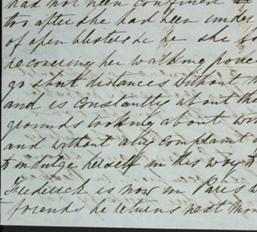 had not been confined to
too after she had been under
of open blisters &c he she
recovering her walking power
go short distances without
and is constantly about the
grounds looking about
and without any complaint of
indulge herself in this way
Frederick is now in Paris
friends he returns next mon